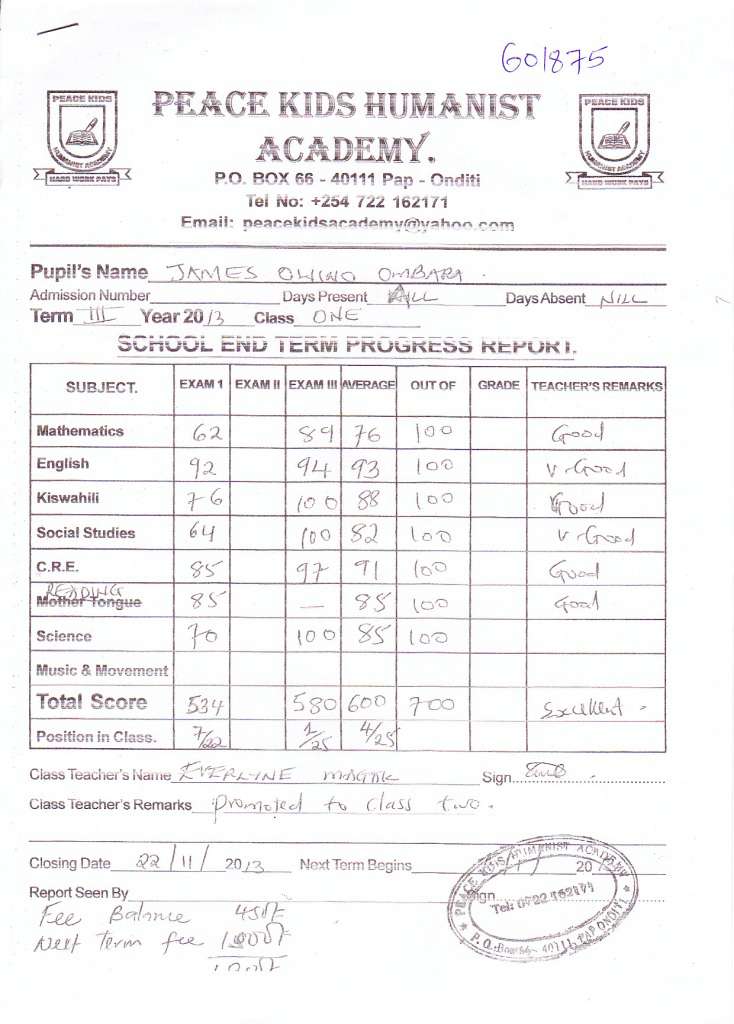 601875
PEACE KIDS HUMANIST ACADEMY HARD WORK PAYS
PEACE KIDS HUMANIST
ACADEMY.
PEACE KIDS HUMANIST ACADEMY HARD WORK PAYS
P.O. BOX 66 - 40111 Pap - Onditi
Tel No: +254 722 162171
Email: peacekidsacademy@yahoo.com
Pupil's Name JAMES OWINO OMBARA .
Admission Number Days Present ALL Days Absent NILL
Term III Year 2013 Class ONE
SCHOOL END TERM PROGRESS REPORT.
SUBJECT. EXAM 1 EXAM II EXAM III AVERAGE OUT OF GRADE TEACHER'S REMARKS
Mathematics 62 89 76 100 Good
English 92 94 93 100 V-Good
Kiswahili 76 100 88 100 Good
Social Studies 64 100 82 100 V-Good
C.R.E. 85 97 91 100 Good
READING
Mother Tongue 85 — 85 100 Good
Science 70 100 85 100
Music & Movement
Total Score 534 580 600 700 Excellent -
Position in Class. 7/22 1/25 4/25
Class Teacher's Name EVERLYNE Sign
Class Teacher's Remarks Promoted to class two.
Closing Date 22/11/2013 Next Term Begins 20
Report Seen By Sign
PEACE KIDS HUMANIST ACADEMY
Tel: 0722 162171
P.O. Box 66 - 40111, PAP ONDITI
Fee Balance
Next Term fee